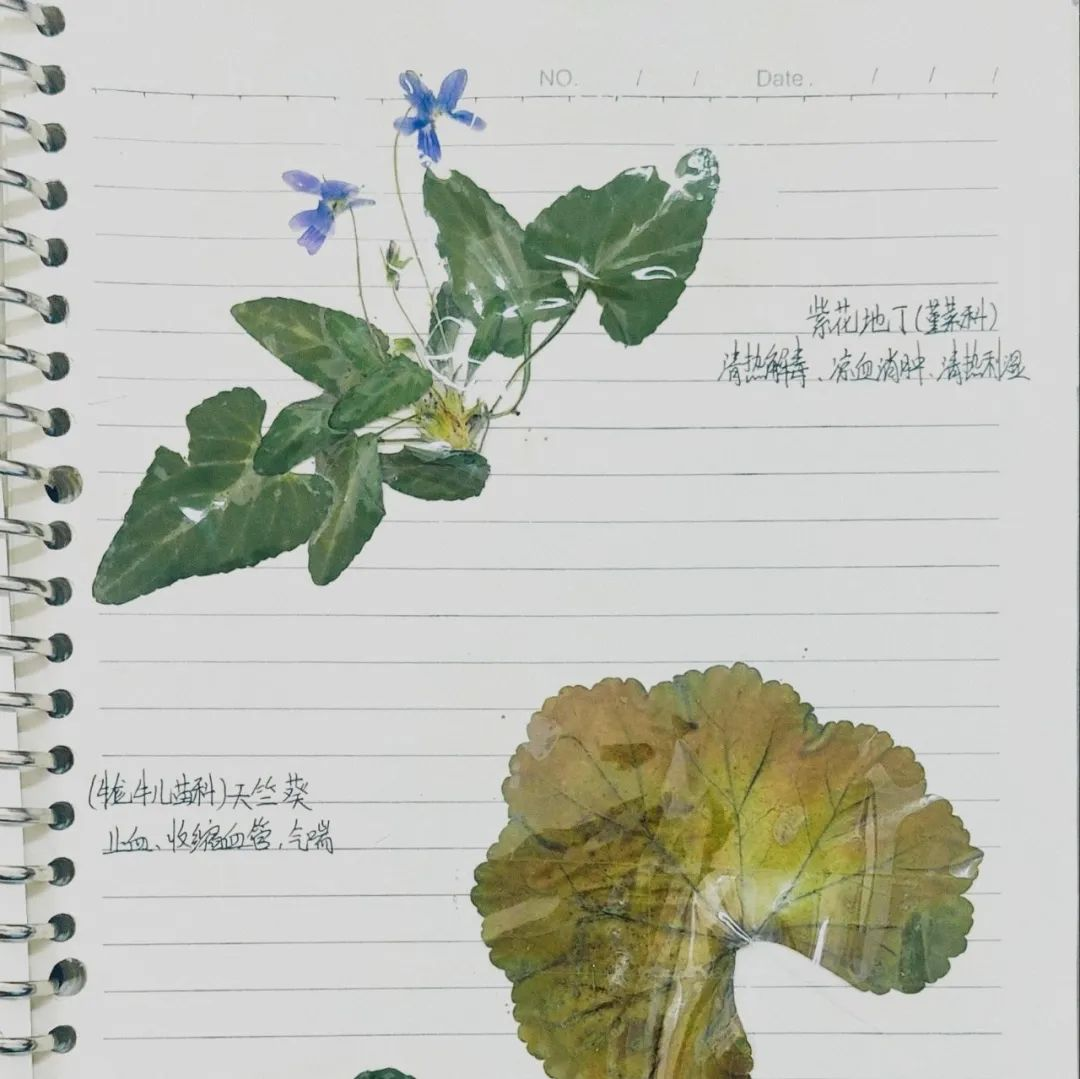 NO. / / Date. / / /
紫花地丁(堇菜科)
清热解毒、凉血消肿、清热利湿
(牻牛儿苗科)天竺葵
止血、收缩血管,气喘